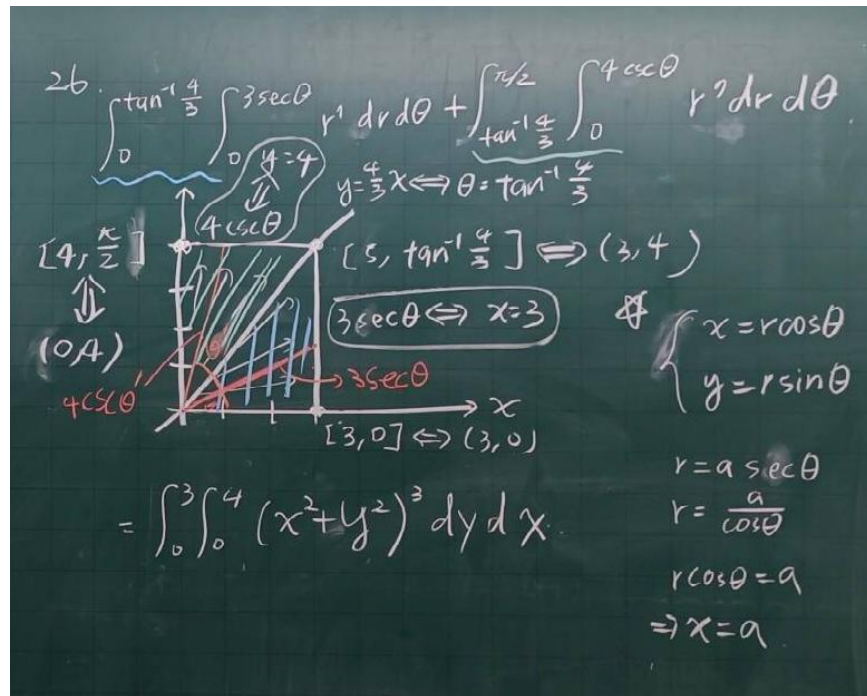 26. ∫_0^{tan⁻¹ 4/3} ∫_0^{3secθ} r⁷ dr dθ + ∫_{tan⁻¹ 4/3}^{π/2} ∫_0^{4cscθ} r⁷ dr dθ
y=4
⇕
4cscθ
y=4/3 x ⟺ θ=tan⁻¹ 4/3
[4, π/2]
⇕
(0,4)
[5, tan⁻¹ 4/3] ⟺ (3,4)
3secθ ⟺ x=3
θ
4cscθ
3secθ
x
[3,0] ⟺ (3,0)
= ∫_0^3 ∫_0^4 (x²+y²)³ dy dx
{ x=rcosθ
y=rsinθ
r=a secθ
r= a/cosθ
rcosθ=a
⇒ x=a